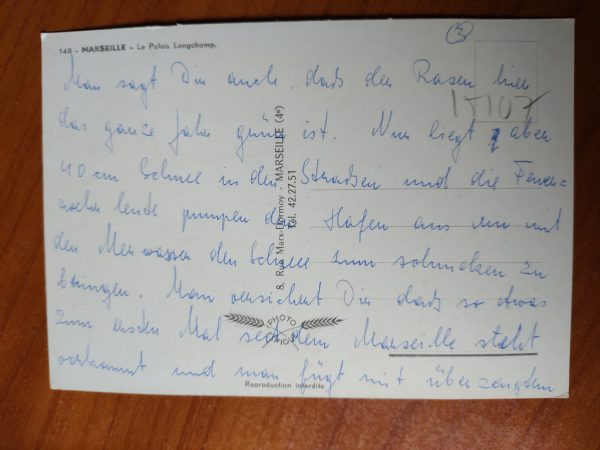 148 - MARSEILLE - Le Palais Longchamp.
3
17107
Man sagt Dir auch, daß der Rasen hier
das ganze Jahr grün ist. Nun liegt aber
40 cm Schnee in den Straßen und die Feuer=
wehr leute pumpen den Hafen aus um mit
den Meerwasser den Schnee zum schmelzen zu
bringen. Man versichert Dir daß so etwas
zum ersten Mal seitdem Marseille steht
vorkommt und man fügt mit überzeugtem
8, Rue Marx-Dormoy - MARSEILLE (4e)
Tél. 42.27.51
PHOTO
Reproduction interdite